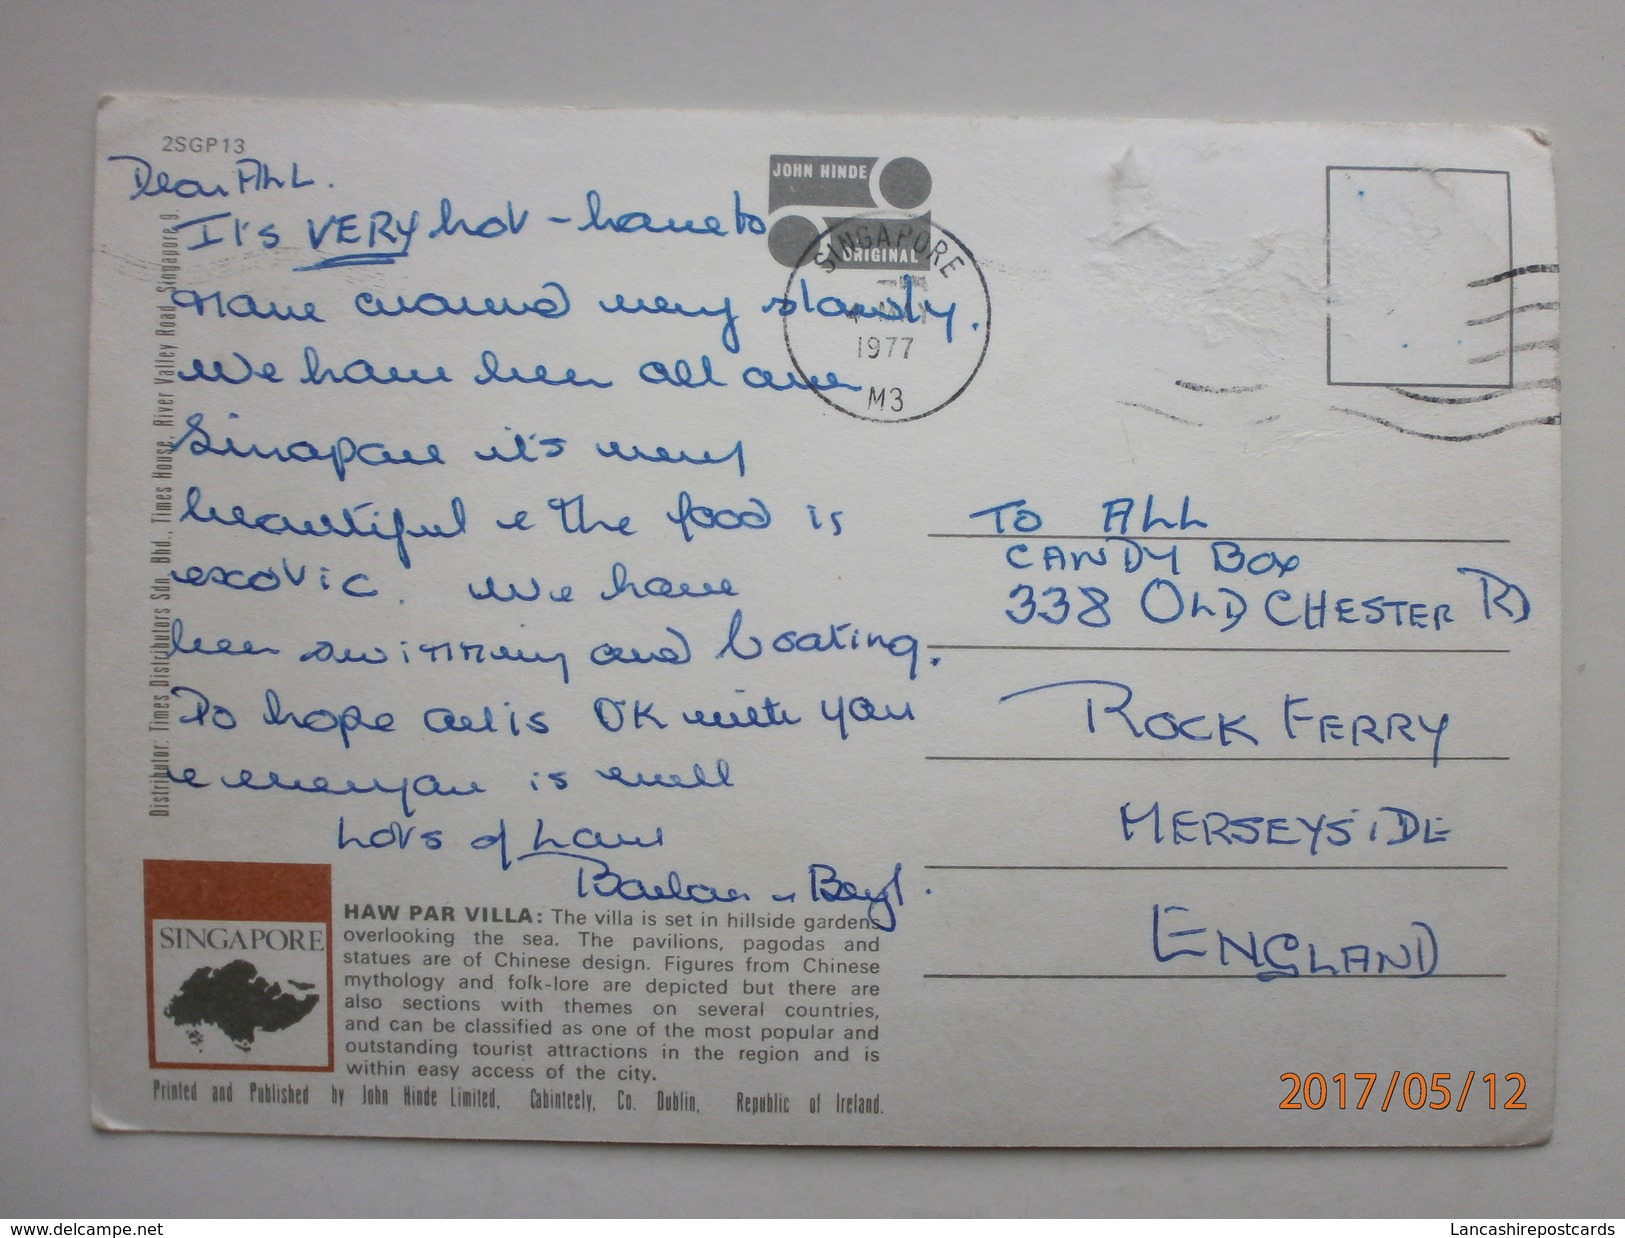 2SGP13
JOHN HINDE
ORIGINAL
SINGAPORE
1977
M3
Dear ALL.
It's VERY hot – have to
move around very slowly.
We have been all over
Sinapore it's very
beautiful & the food is
exotic. We have
been swimming and boating.
Do hope all is OK with you
& everyone is well
Lots of Love
Barbara & Beryl.
TO ALL
CANDY BOX
338 OLD CHESTER RD
ROCK FERRY
MERSEYSIDE
ENGLAND
Distributor: Times Distributors Sdn. Bhd., Times House, River Valley Road, Singapore 9.
SINGAPORE
HAW PAR VILLA: The villa is set in hillside gardens
overlooking the sea. The pavilions, pagodas and
statues are of Chinese design. Figures from Chinese
mythology and folk-lore are depicted but there are
also sections with themes on several countries,
and can be classified as one of the most popular and
outstanding tourist attractions in the region and is
within easy access of the city.
Printed and Published by John Hinde Limited, Cabinteely, Co. Dublin, Republic of Ireland.
2017/05/12
www.delcampe.net
Lancashirepostcards